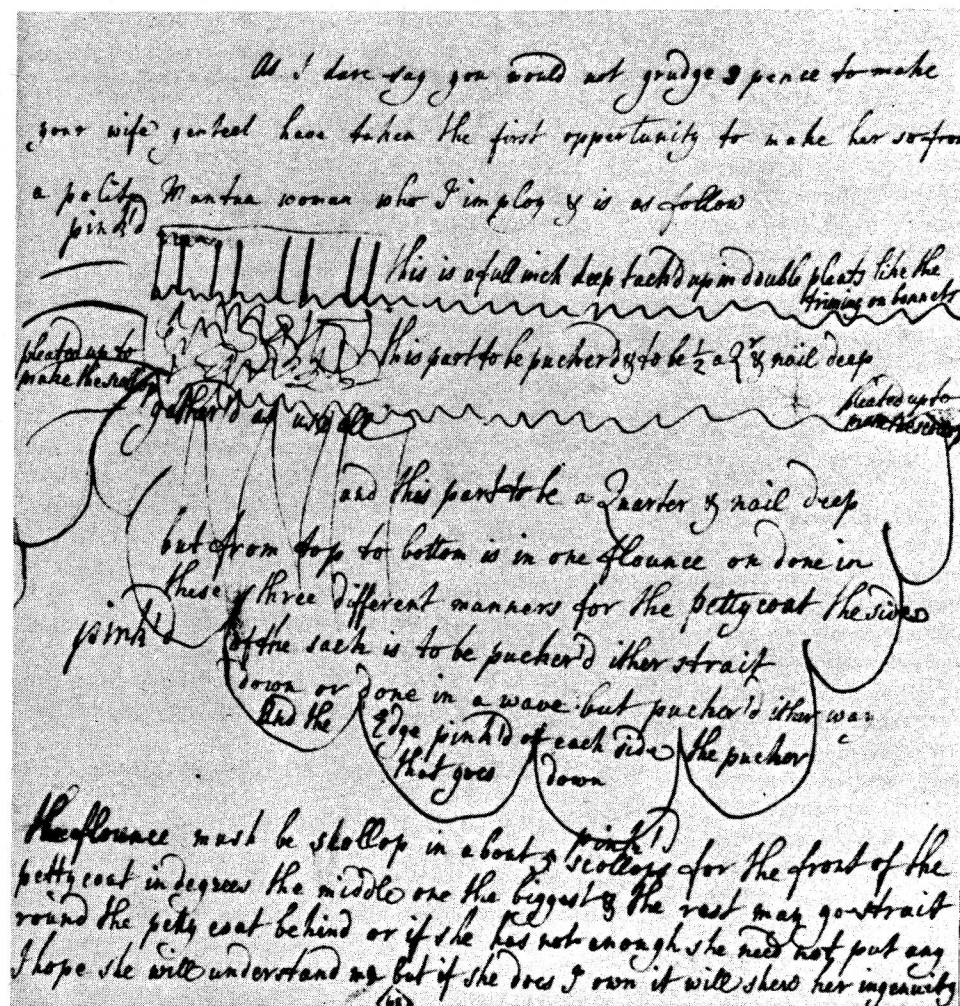 As I dare say you would not grudge 9 pence to make
your wife genteel have taken the first opportunity to make her so from
a polite Mantua woman who I imploy & is as follow
pink'd
this is a full inch deep tack'd up in double pleats like the
triming on bonnets
pleated up to
make the scollop
this part to be pucher'd & to be ½ a Qr & nail deap
gather'd as usiall
pleated up to
make the scollop
and this part to be a Quarter & nail deep
but from top to bottom is in one flounce on done in
these three different manners for the pettycoat the sides
pink'd
of the sack is to be pucher'd ither strait
down or done in a wave but pucher'd ither way
And the Edge pink'd of each side the pucher
that goes down
the flounce must be skollop in about
pink'd
scollops for the front of the
pettycoat in degrees the middle one the biggest & the rast may go strait
round the petty coat behind or if she has not anough she need not put any
I hope she will understand me but if she does I own it will shew her ingenuity